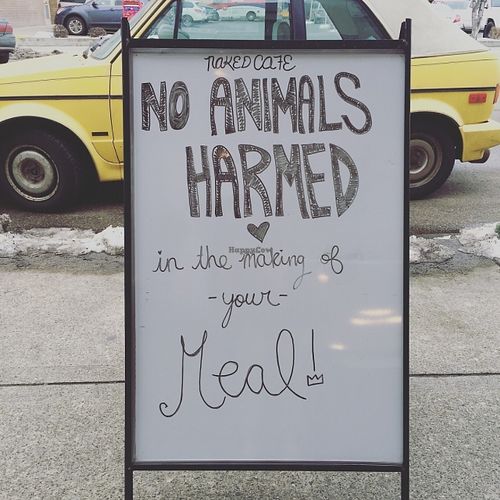 NAKED CAFE
NO ANIMALS
HARMED
HappyCow
in the making of
-your-
Meal!